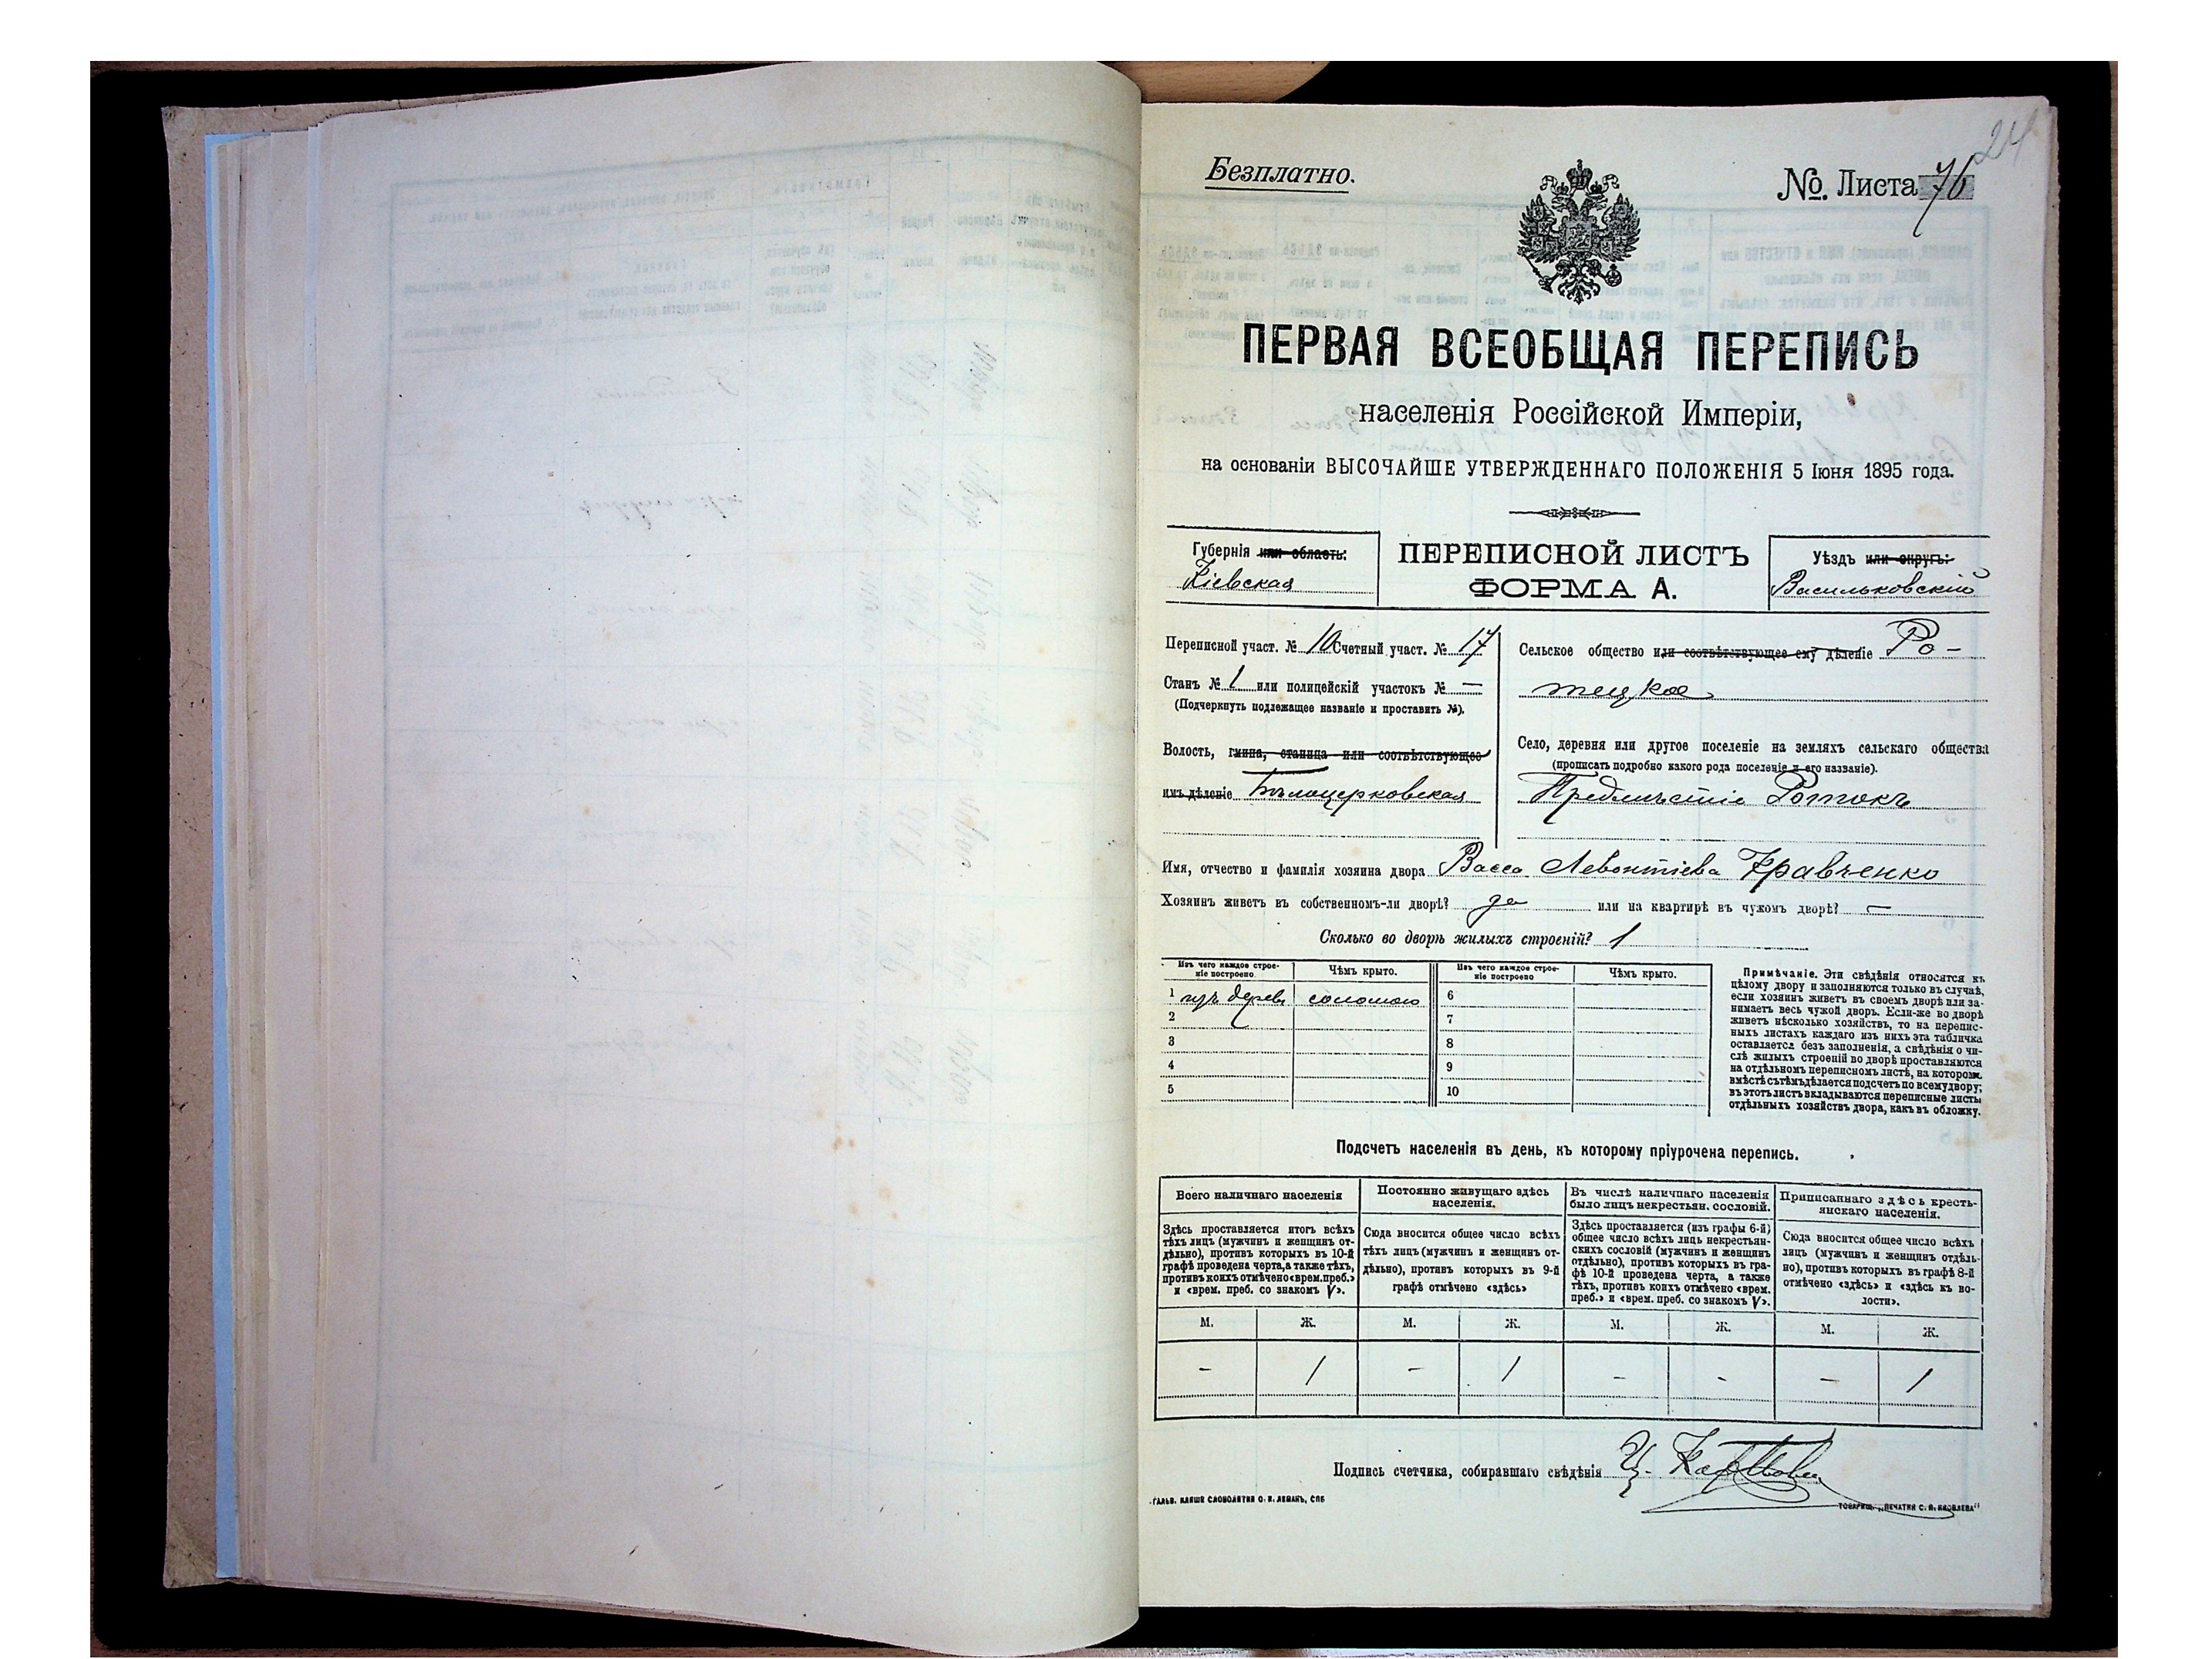 24
Безплатно.
№. Листа 76
ПЕРВАЯ ВСЕОБЩАЯ ПЕРЕПИСЬ
населенія Россійской Имперіи,
на основаніи ВЫСОЧАЙШЕ УТВЕРЖДЕННАГО ПОЛОЖЕНІЯ 5 Іюня 1895 года.
Губернія или область:
Кіевская
ПЕРЕПИСНОЙ ЛИСТЪ
ФОРМА А.
Уѣздъ или округъ:
Васильковскій
Переписной участ. № 10 Счетный участ. № 17
Станъ № 1 или полицейскій участокъ № —
(Подчеркнуть подлежащее названіе и проставить №).
Волость, гмина, станица или соотвѣтствующее
имъ дѣленіе Бѣлоцерковская
Сельское общество или соотвѣтствующее ему дѣленіе Ро-
тецкое
Село, деревня или другое поселеніе на земляхъ сельскаго общества
(прописать подробно какого рода поселеніе и его названіе).
Предмѣстіе Ротокъ
Имя, отчество и фамилія хозяина двора Васса Левонтіева Кравченко
Хозяинъ живетъ въ собственномъ-ли дворѣ? да или на квартирѣ въ чужомъ дворѣ? —
Сколько во дворѣ жилыхъ строеній? 1
Изъ чего каждое строе-
ніе построено
Чѣмъ крыто.
Изъ чего каждое строе-
ніе построено
Чѣмъ крыто.
1 изъ дерева соломою 6
2 7
3 8
4 9
5 10
Примѣчаніе. Эти свѣдѣнія относятся къ
цѣлому двору и заполняются только въ случаѣ,
если хозяинъ живетъ въ своемъ дворѣ или за-
нимаетъ весь чужой дворъ. Если-же во дворѣ
живетъ нѣсколько хозяйствъ, то на перепис-
ныхъ листахъ каждаго изъ нихъ эта табличка
оставляется безъ заполненія, а свѣдѣнія о чи-
слѣ жилыхъ строеній во дворѣ проставляются
на отдѣльномъ переписномъ листѣ, на которомъ
вмѣстѣ съ тѣмъ дѣлается подсчетъ по всему двору;
въ этотъ листъ вкладываются переписные листы
отдѣльныхъ хозяйствъ двора, какъ въ обложку.
Подсчетъ населенія въ день, къ которому пріурочена перепись.
Всего наличнаго населенія
Здѣсь проставляется итогъ всѣхъ
тѣхъ лицъ (мужчинъ и женщинъ от-
дѣльно), противъ которыхъ въ 10-й
графѣ проведена черта, а также тѣхъ,
противъ коихъ отмѣчено «врем. преб.»
и «врем. преб. со знакомъ V».
Постоянно живущаго здѣсь
населенія.
Сюда вносится общее число всѣхъ
тѣхъ лицъ (мужчинъ и женщинъ от-
дѣльно), противъ которыхъ въ 9-й
графѣ отмѣчено «здѣсь»
Въ числѣ наличнаго населенія
было лицъ некрестьян. сословій.
Здѣсь проставляется (изъ графы 6-й)
общее число всѣхъ лицъ некрестьян-
скихъ сословій (мужчинъ и женщинъ
отдѣльно), противъ которыхъ въ гра-
фѣ 10-й проведена черта, а также
тѣхъ, противъ коихъ отмѣчено «врем.
преб.» и «врем. преб. со знакомъ V».
Приписаннаго здѣсь кресть-
янскаго населенія.
Сюда вносится общее число всѣхъ
лицъ (мужчинъ и женщинъ отдѣль-
но), противъ которыхъ въ графѣ 8-й
отмѣчено «здѣсь» и «здѣсь къ во-
лости».
М. Ж. М. Ж. М. Ж. М. Ж.
- 1 - 1 - - - 1
Подпись счетчика, собиравшаго свѣдѣнія
ГАЛЬВ. КЛИШЕ СЛОВОЛИТНИ О. И. ЛЕМАНЪ, СПБ
ТОВАРИЩ. „ПЕЧАТНЯ С. П. ЯКОВЛЕВА"